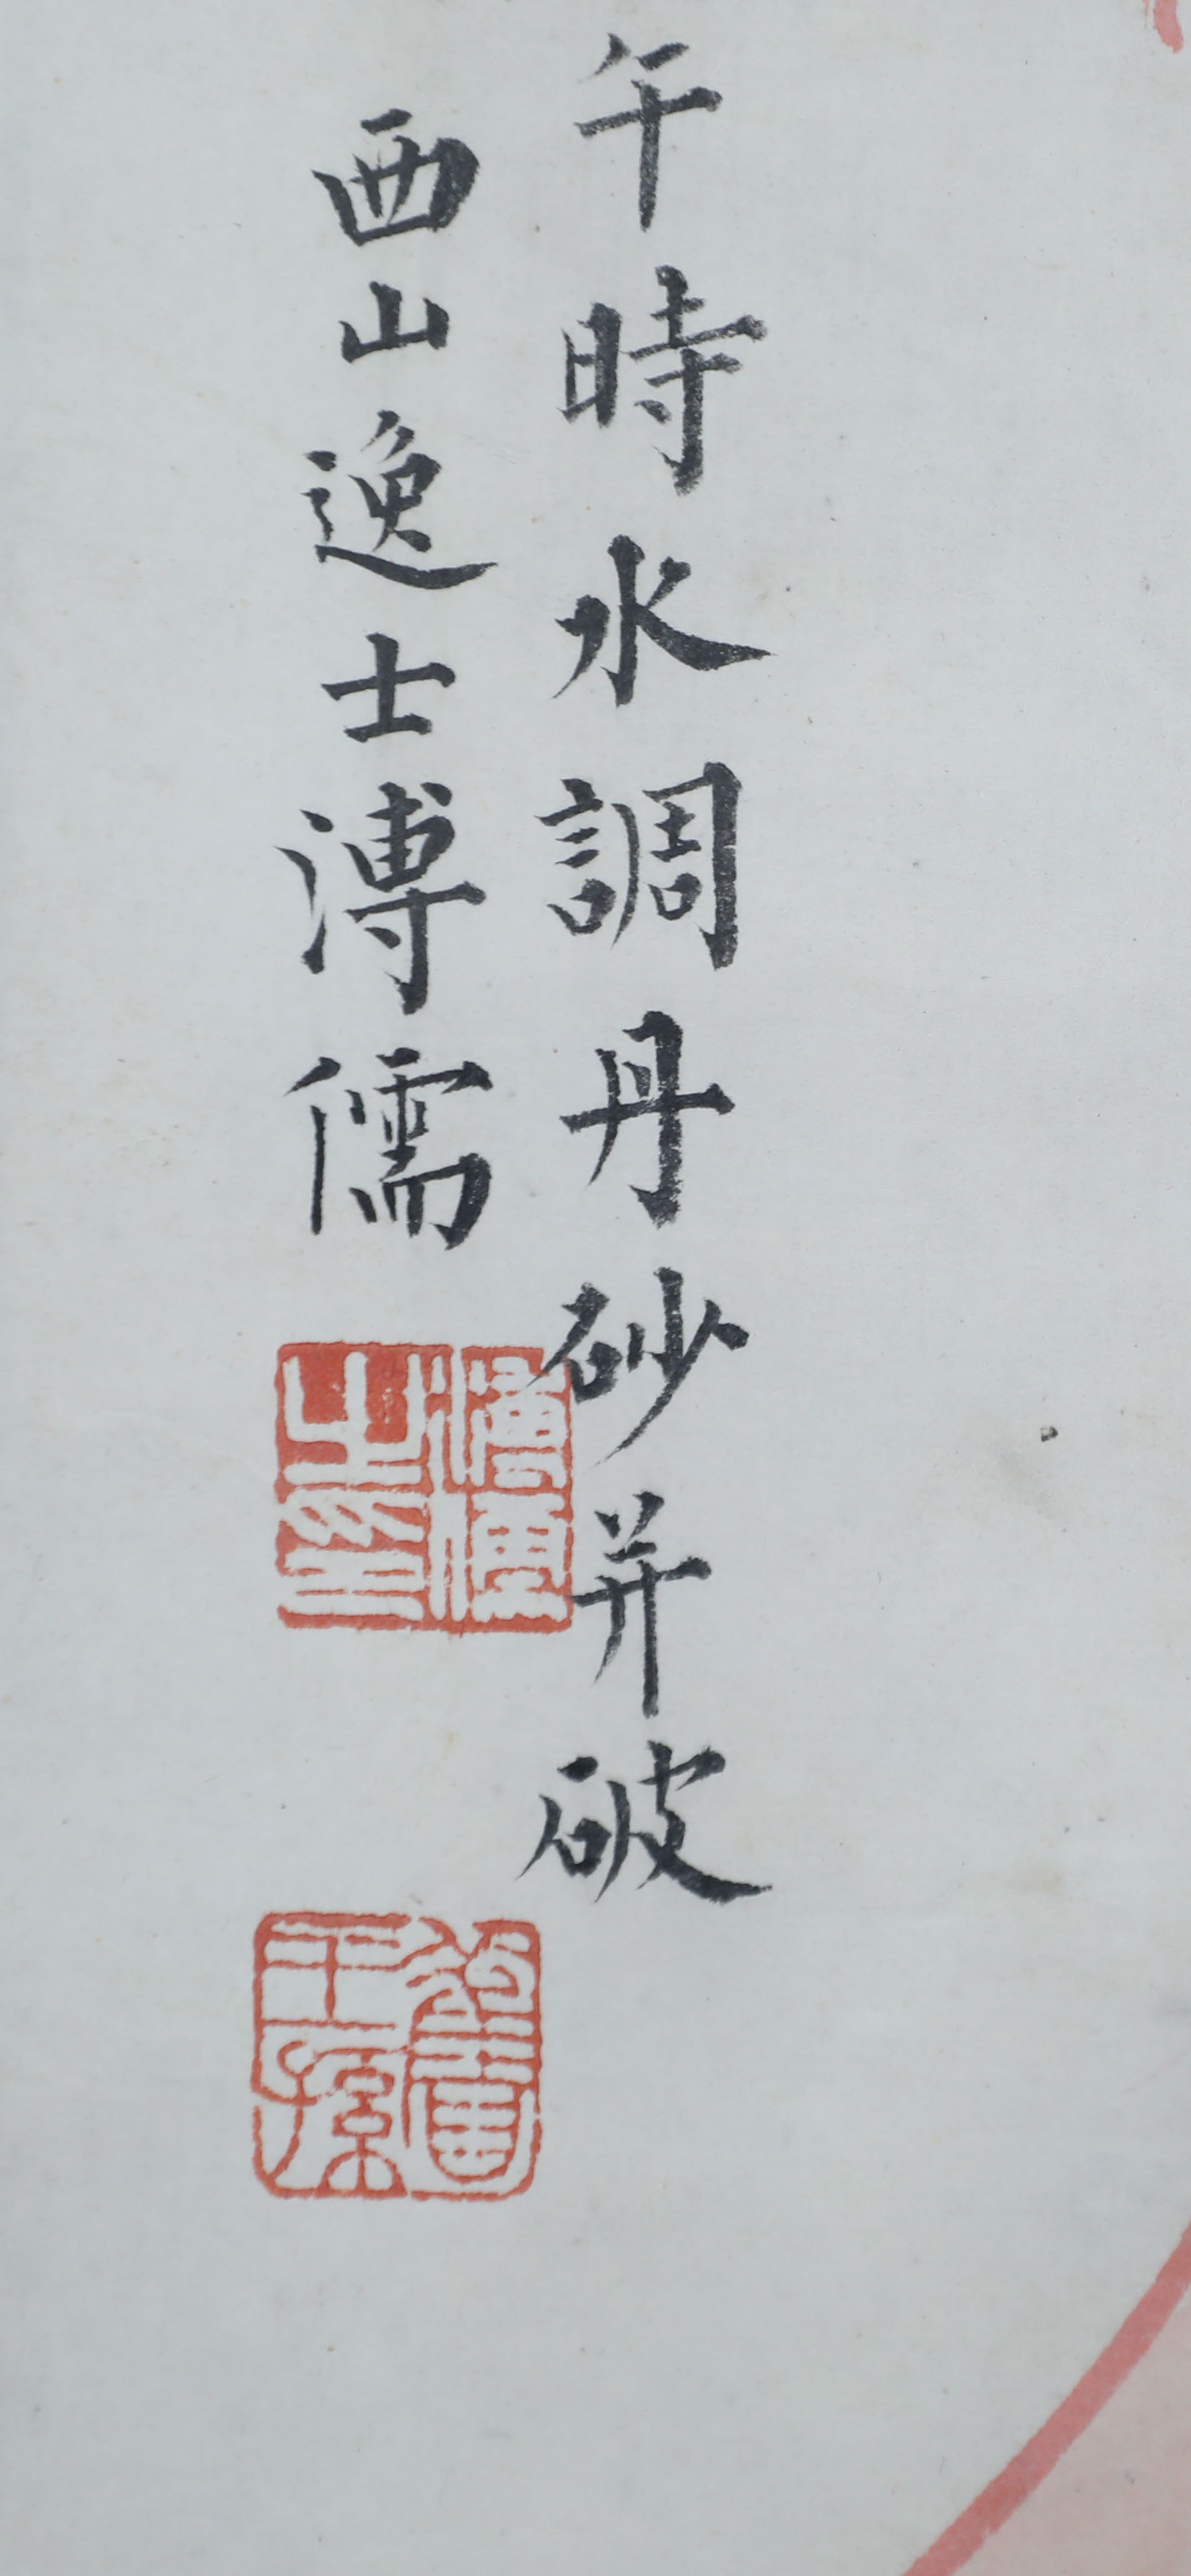 午時水調丹砂并破
西山逸士溥儒
溥儒之印
舊王孫